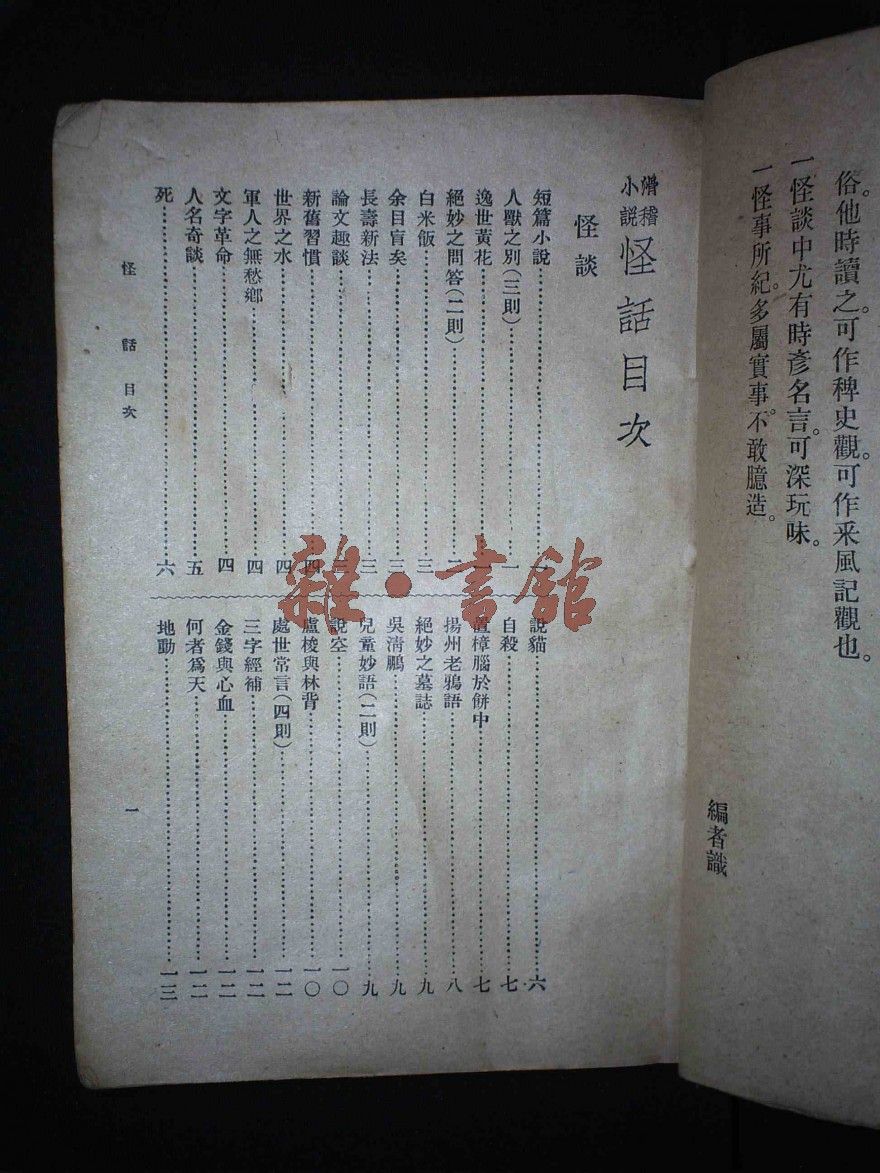 俗。他時讀之。可作稗史觀。可作采風記觀也。
一怪談中尤有時彥名言。可深玩味。
一怪事所紀。多屬實事。不敢臆造。
編者識
滑稽小說怪話目次
怪談
短篇小說……一
人獸之別(三則)……一
逸世黃花……
絕妙之問答(二則)……二
白米飯……三
余目盲矣……三
長壽新法……三
論文趣談……三
新舊習慣……四
世界之水……四
軍人之無愁鄉……四
文字革命……四
人名奇談……五
死……六
說貓……六
自殺……七
置樟腦於餅中……七
揚州老鴉語……八
絕妙之墓誌……九
吳清鵬……九
兒童妙語(二則)……九
說空……一〇
盧梭與林肯……一〇
處世常言(四則)……一二
三字經補……一二
金錢與心血……一二
何者為天……一二
地動……一三
怪話目次
一
雜·書館